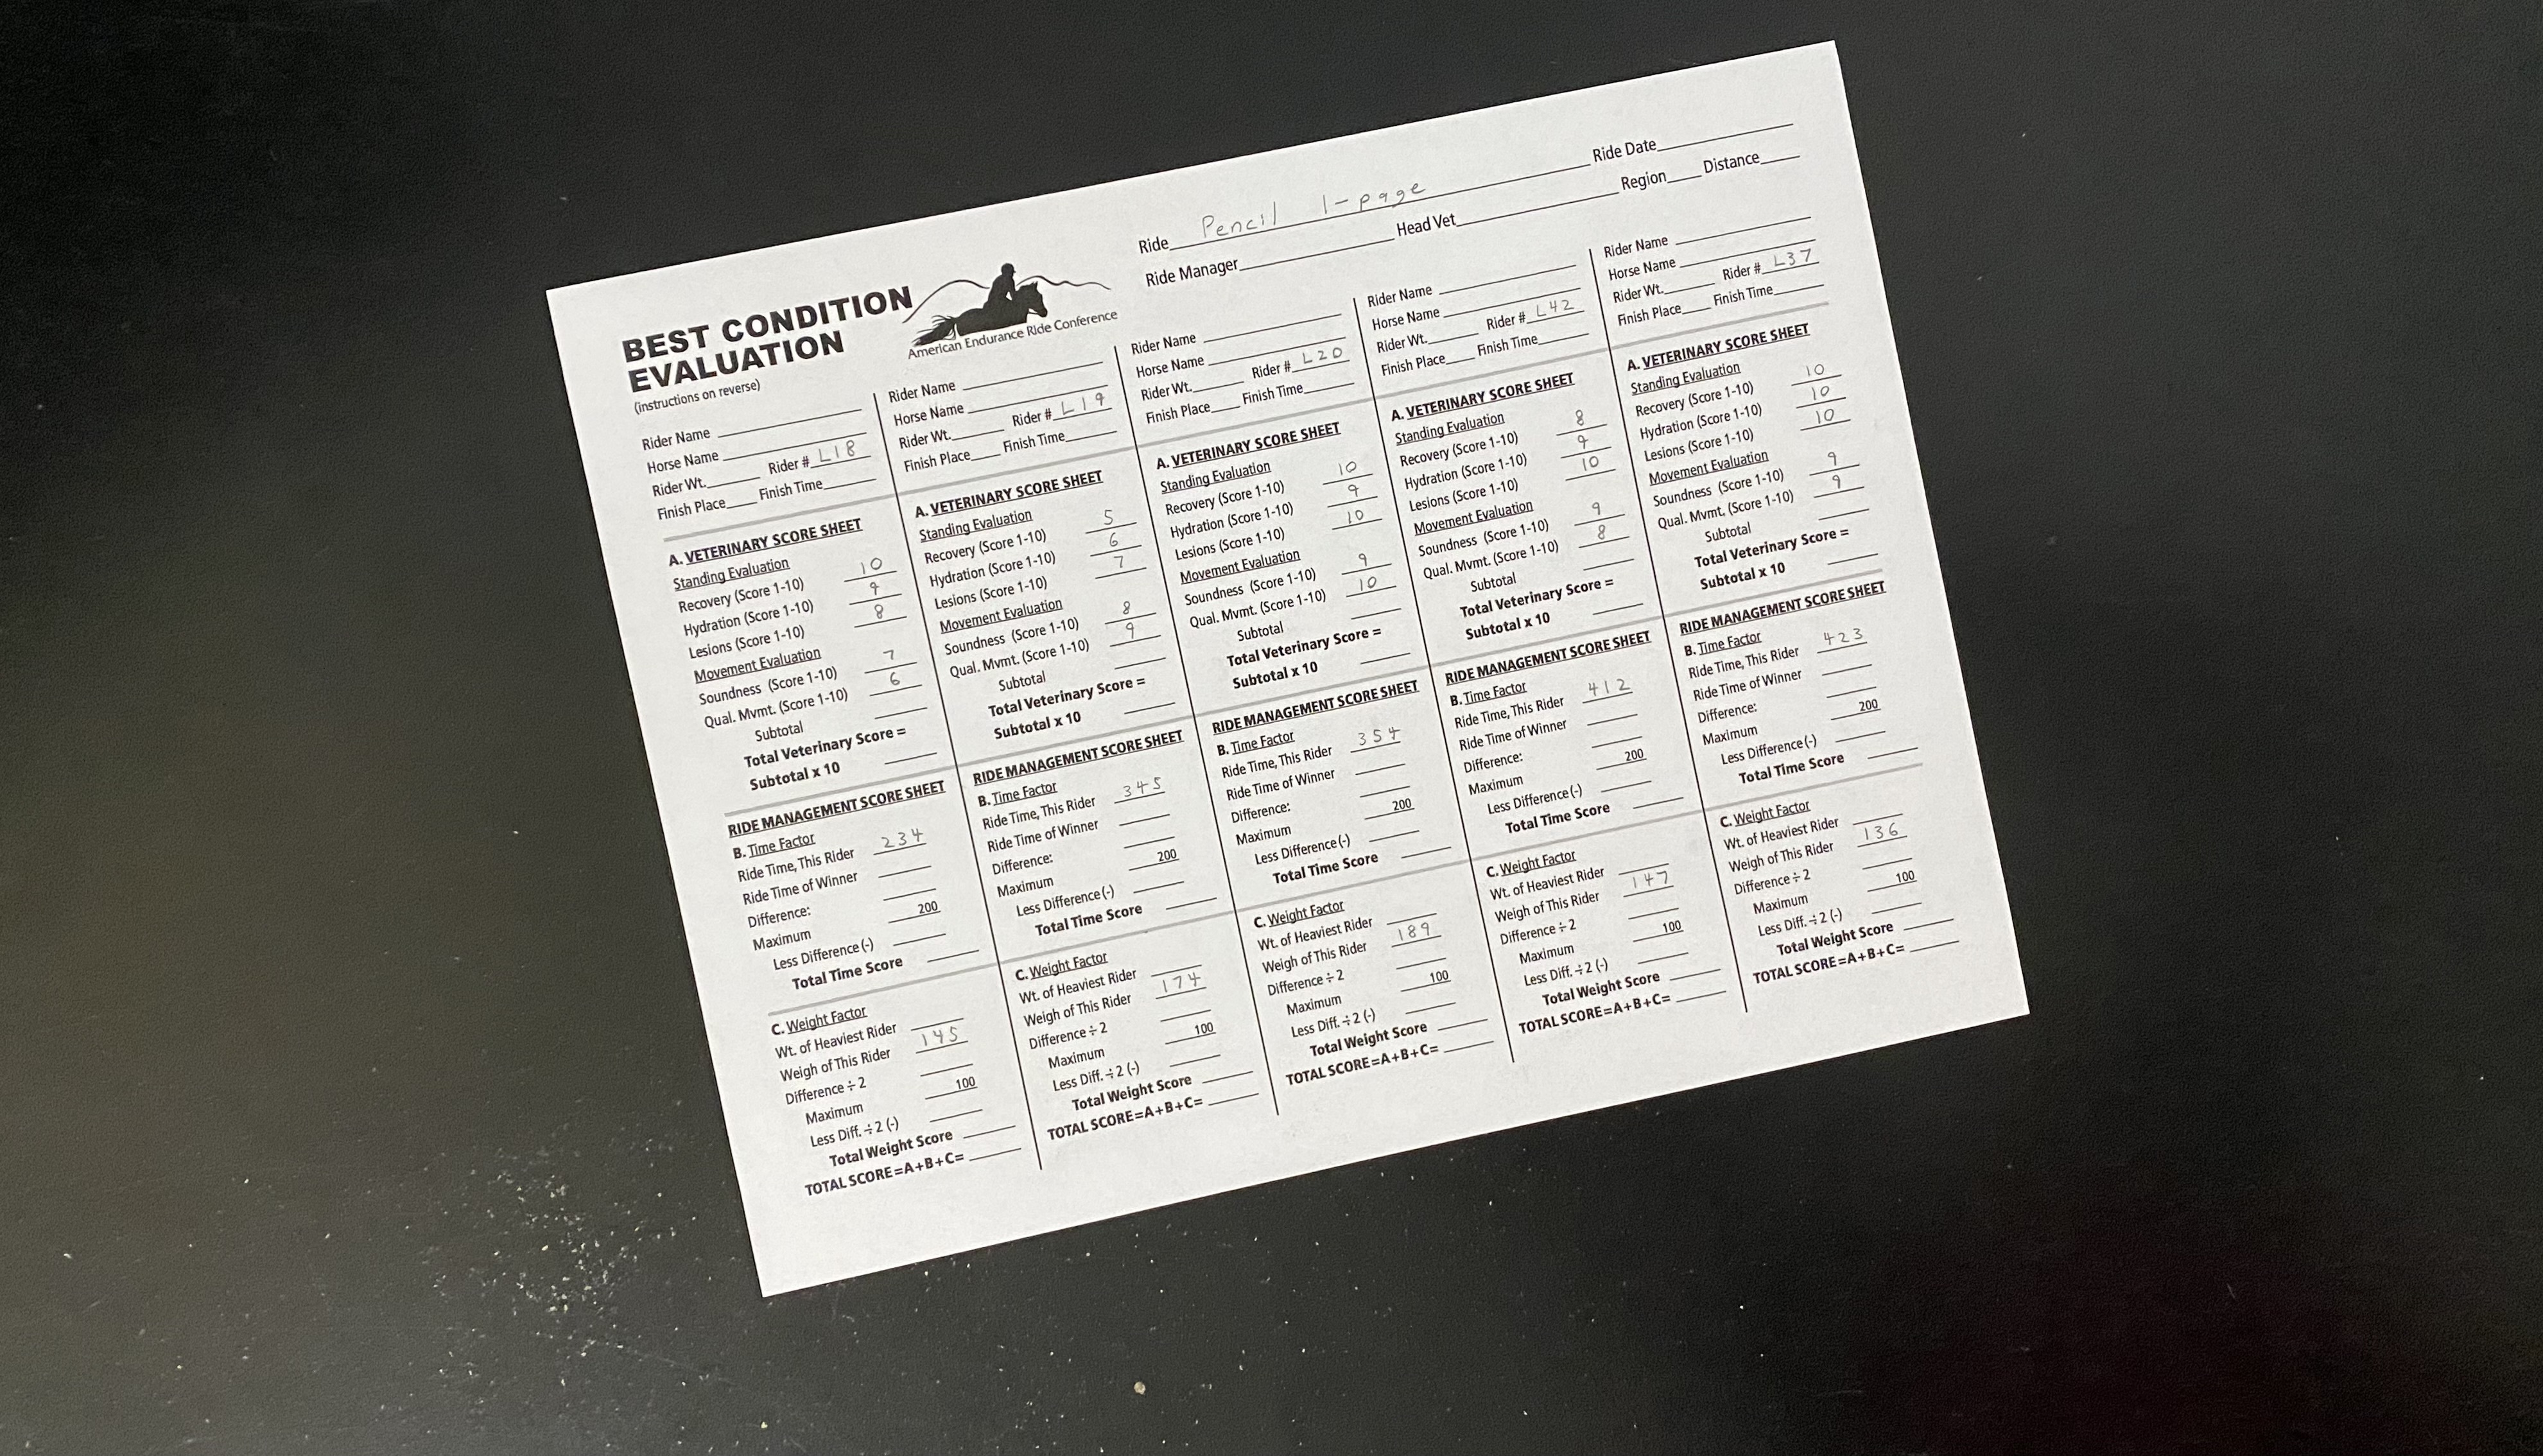 BEST CONDITION
EVALUATION
(instructions on reverse)
American Endurance Ride Conference
Ride Pencil 1-page Ride Date
Ride Manager Head Vet Region Distance
Rider Name
Horse Name
Rider Wt. Rider # L18
Finish Place Finish Time
A. VETERINARY SCORE SHEET
Standing Evaluation
Recovery (Score 1-10) 10
Hydration (Score 1-10) 9
Lesions (Score 1-10) 8
Movement Evaluation
Soundness (Score 1-10) 7
Qual. Mvmt. (Score 1-10) 6
Subtotal
Total Veterinary Score =
Subtotal x 10
RIDE MANAGEMENT SCORE SHEET
B. Time Factor
Ride Time, This Rider 234
Ride Time of Winner
Difference:
Maximum 200
Less Difference (-)
Total Time Score
C. Weight Factor
Wt. of Heaviest Rider
Weigh of This Rider 145
Difference ÷ 2
Maximum 100
Less Diff. ÷ 2 (-)
Total Weight Score
TOTAL SCORE=A+B+C=
Rider Name
Horse Name
Rider Wt. Rider # L19
Finish Place Finish Time
A. VETERINARY SCORE SHEET
Standing Evaluation
Recovery (Score 1-10) 5
Hydration (Score 1-10) 6
Lesions (Score 1-10) 7
Movement Evaluation
Soundness (Score 1-10) 8
Qual. Mvmt. (Score 1-10) 9
Subtotal
Total Veterinary Score =
Subtotal x 10
RIDE MANAGEMENT SCORE SHEET
B. Time Factor
Ride Time, This Rider 345
Ride Time of Winner
Difference:
Maximum 200
Less Difference (-)
Total Time Score
C. Weight Factor
Wt. of Heaviest Rider
Weigh of This Rider 174
Difference ÷ 2
Maximum 100
Less Diff. ÷ 2 (-)
Total Weight Score
TOTAL SCORE=A+B+C=
Rider Name
Horse Name
Rider Wt. Rider # L20
Finish Place Finish Time
A. VETERINARY SCORE SHEET
Standing Evaluation
Recovery (Score 1-10) 10
Hydration (Score 1-10) 9
Lesions (Score 1-10) 10
Movement Evaluation
Soundness (Score 1-10) 9
Qual. Mvmt. (Score 1-10) 10
Subtotal
Total Veterinary Score =
Subtotal x 10
RIDE MANAGEMENT SCORE SHEET
B. Time Factor
Ride Time, This Rider 354
Ride Time of Winner
Difference:
Maximum 200
Less Difference (-)
Total Time Score
C. Weight Factor
Wt. of Heaviest Rider
Weigh of This Rider 189
Difference ÷ 2
Maximum 100
Less Diff. ÷ 2 (-)
Total Weight Score
TOTAL SCORE=A+B+C=
Rider Name
Horse Name
Rider Wt. Rider # L42
Finish Place Finish Time
A. VETERINARY SCORE SHEET
Standing Evaluation
Recovery (Score 1-10) 8
Hydration (Score 1-10) 9
Lesions (Score 1-10) 10
Movement Evaluation
Soundness (Score 1-10) 9
Qual. Mvmt. (Score 1-10) 8
Subtotal
Total Veterinary Score =
Subtotal x 10
RIDE MANAGEMENT SCORE SHEET
B. Time Factor
Ride Time, This Rider 412
Ride Time of Winner
Difference:
Maximum 200
Less Difference (-)
Total Time Score
C. Weight Factor
Wt. of Heaviest Rider
Weigh of This Rider 147
Difference ÷ 2
Maximum 100
Less Diff. ÷ 2 (-)
Total Weight Score
TOTAL SCORE=A+B+C=
Rider Name
Horse Name
Rider Wt. Rider # L37
Finish Place Finish Time
A. VETERINARY SCORE SHEET
Standing Evaluation
Recovery (Score 1-10) 10
Hydration (Score 1-10) 10
Lesions (Score 1-10) 10
Movement Evaluation
Soundness (Score 1-10) 9
Qual. Mvmt. (Score 1-10) 9
Subtotal
Total Veterinary Score =
Subtotal x 10
RIDE MANAGEMENT SCORE SHEET
B. Time Factor
Ride Time, This Rider 423
Ride Time of Winner
Difference:
Maximum 200
Less Difference (-)
Total Time Score
C. Weight Factor
Wt. of Heaviest Rider
Weigh of This Rider 136
Difference ÷ 2
Maximum 100
Less Diff. ÷ 2 (-)
Total Weight Score
TOTAL SCORE=A+B+C=